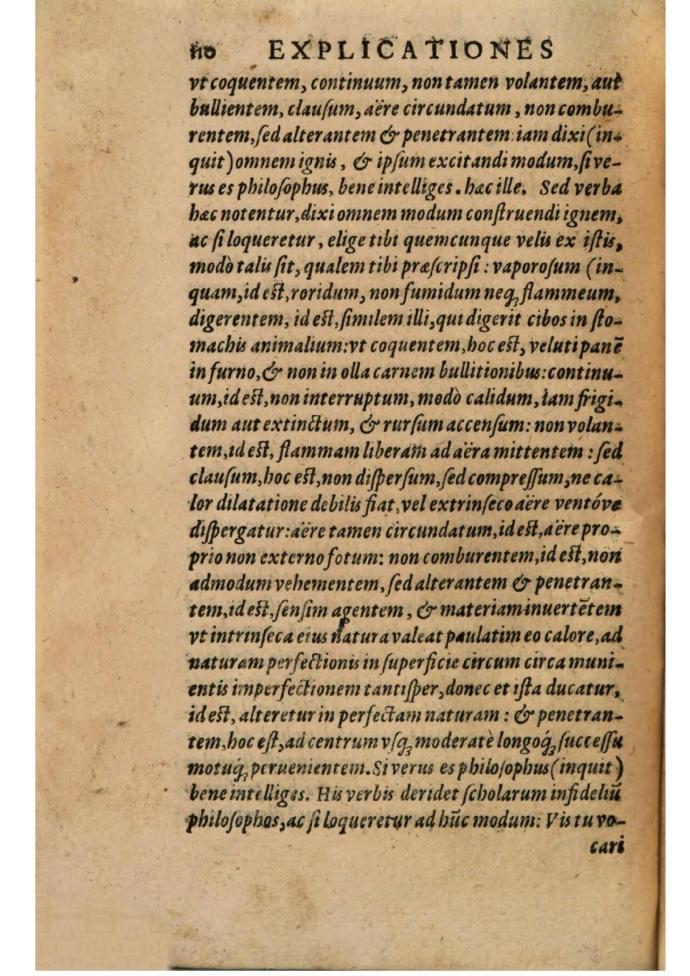 110 EXPLICATIONES
vt coquentem, continuum, non tamen volantem, aut
bullientem, clauſum, aëre circundatum, non combu-
rentem, ſed alterantem & penetrantem: iam dixi (in-
quit) omnem ignis, & ipſum excitandi modum, ſi ve-
rus es philoſophus, bene intelliges. hæc ille. Sed verba
hæc notentur, dixi omnem modum conſtruendi ignem,
ac ſi loqueretur, elige tibi quemcunque velis ex iſtis,
modò talis ſit, qualem tibi præſcripſi: vaporoſum (in-
quam, id eſt, roridum, non fumidum neq; flammeum,
digerentem, id eſt, ſimilem illi, qui digerit cibos in ſto-
machis animalium: vt coquentem, hoc eſt, veluti panē
in furno, & non in olla carnem bullitionibus: continu-
um, id eſt, non interruptum, modò calidum, iam frigi-
dum aut extinctum, & rurſum accenſum: non volan-
tem, id eſt, flammam liberam ad aëra mittentem: ſed
clauſum, hoc eſt, non diſperſum, ſed compreſſum, ne ca-
lor dilatatione debilis fiat, vel extrinſeco aëre ventóve
diſpergatur: aëre tamen circundatum, id eſt, aëre pro-
prio non externo fotum: non comburentem, id eſt, non
admodum vehementem, ſed alterantem & penetran-
tem, id eſt, ſenſim agentem, & materiam inuertētem
vt intrinſeca eius natura valeat paulatim eo calore, ad
naturam perfectionis in ſuperficie circum circa muni-
entis imperfectionem tantiſper, donec et iſta ducatur,
id eſt, alteretur in perfectam naturam: & penetran-
tem, hoc eſt, ad centrum vſq; moderatè longoq́; ſucceſſu
motuq́; peruenientem. Si verus es philoſophus (inquit)
bene intelliges. His verbis deridet ſcholarum infideliū
philoſophos, ac ſi loqueretur ad hūc modum: Vis tu vo-
cari